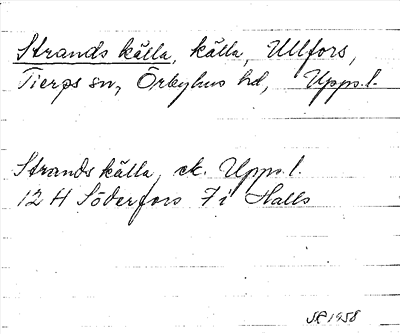 Strands källa, källa, Ullfors,
Tierps sn, Örbyhus hd, Upps.l.
Strands källa, ek. Upps.l.
12 H Söderfors 7 i Halls
1958